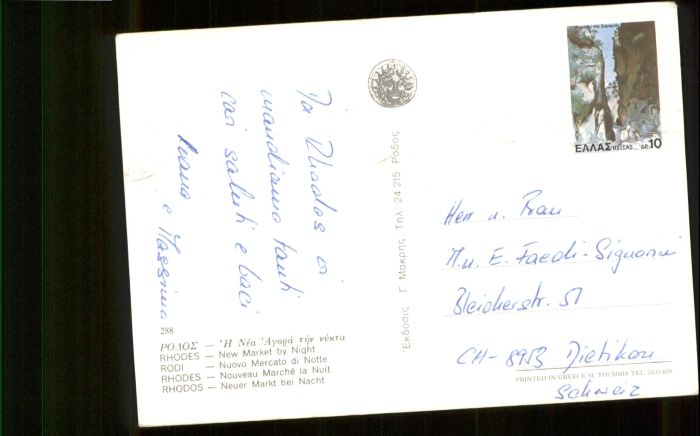 Da Rhodos vi
mandiamo tanti
cari saluti e baci
e Massimo
288
ΡΟΔΟΣ – Ἡ Νέα Ἀγορά τήν νύκτα
RHODES – New Market by Night
RODI – Nuovo Mercato di Notte
RHODES – Nouveau Marché la Nuit
RHODOS – Neuer Markt bei Nacht
Εκδοσις Γ. Μακρης Τηλ. 24.215 Ροδος
ΕΛΛΑΣ HELLAS ΔΡ. 10
Herr u. Frau
M. u. E. Faedi-Signorini
Bleicherstr. 51
CH-8953 Dietikon
PRINTED IN GREECE M. TOUMBIS TEL.
Schweiz